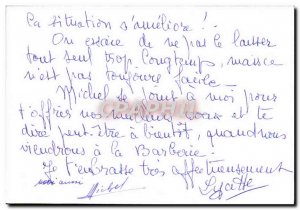 la situation s'améliore !..
On essaie de ne pas le laisser
tout seul trop longtemps, mais ce
n'est pas toujours facile -
Michel se joint à moi pour
t'offrir nos meilleurs vœux et te
dire peut-être à bientôt, quand nous
viendrons à la Barberie.
Je t'embrasse très affectueusement
moi aussi
Michel